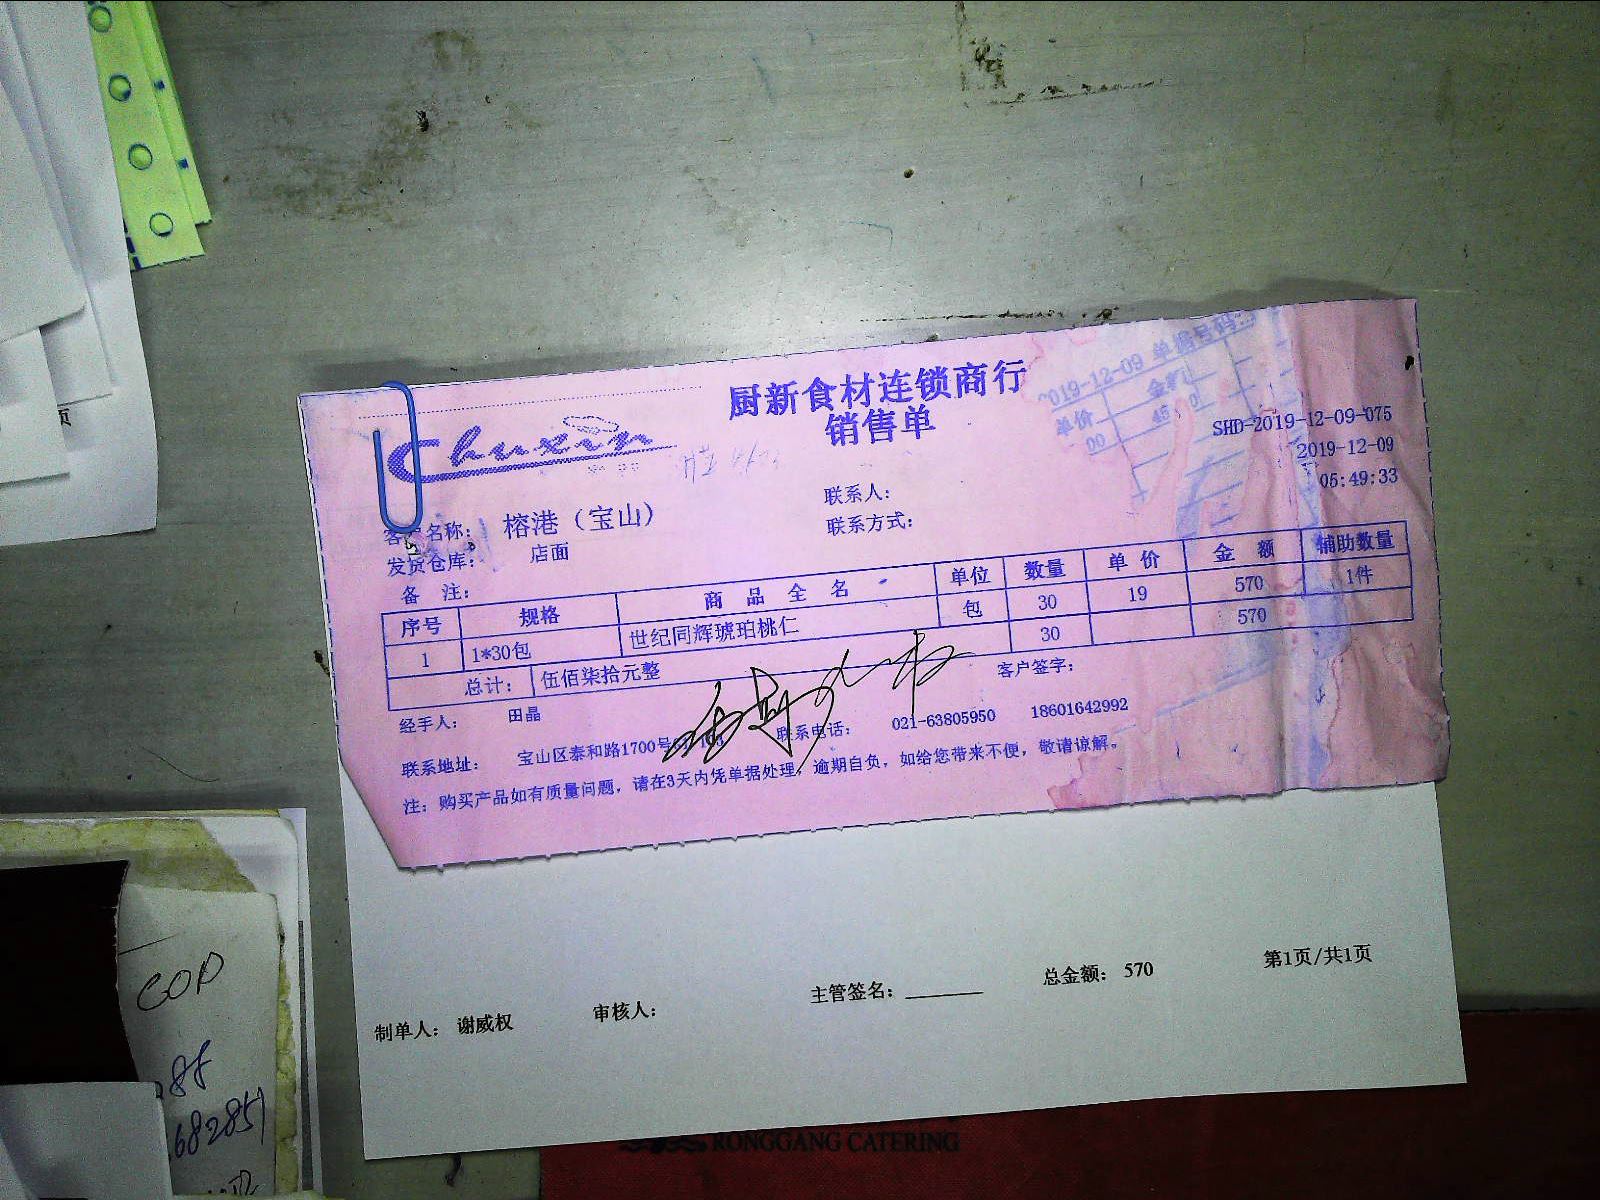 厨新食材连锁商行
销售单
Chuxin
2019-12-09 单据编号码:
单价 金额
00 45 0
SHD-2019-12-09-075
2019-12-09
05:49:33
客户名称: 榕港（宝山） 联系人:
发货仓库: 店面 联系方式:
备 注:
序号 规格 商 品 全 名 单位 数量 单 价 金 额 辅助数量
1 1*30包 世纪同辉琥珀桃仁 包 30 19 570 1件
总计: 伍佰柒拾元整 30 570
经手人: 田晶 客户签字:
联系地址: 宝山区泰和路1700号 联系电话: 021-63805950 18601642992
注: 购买产品如有质量问题, 请在3天内凭单据处理, 逾期自负, 如给您带来不便, 敬请谅解。
制单人: 谢威权 审核人: 主管签名: 总金额: 570 第1页/共1页
RONGGANG CATERING
COD
288
682851
页